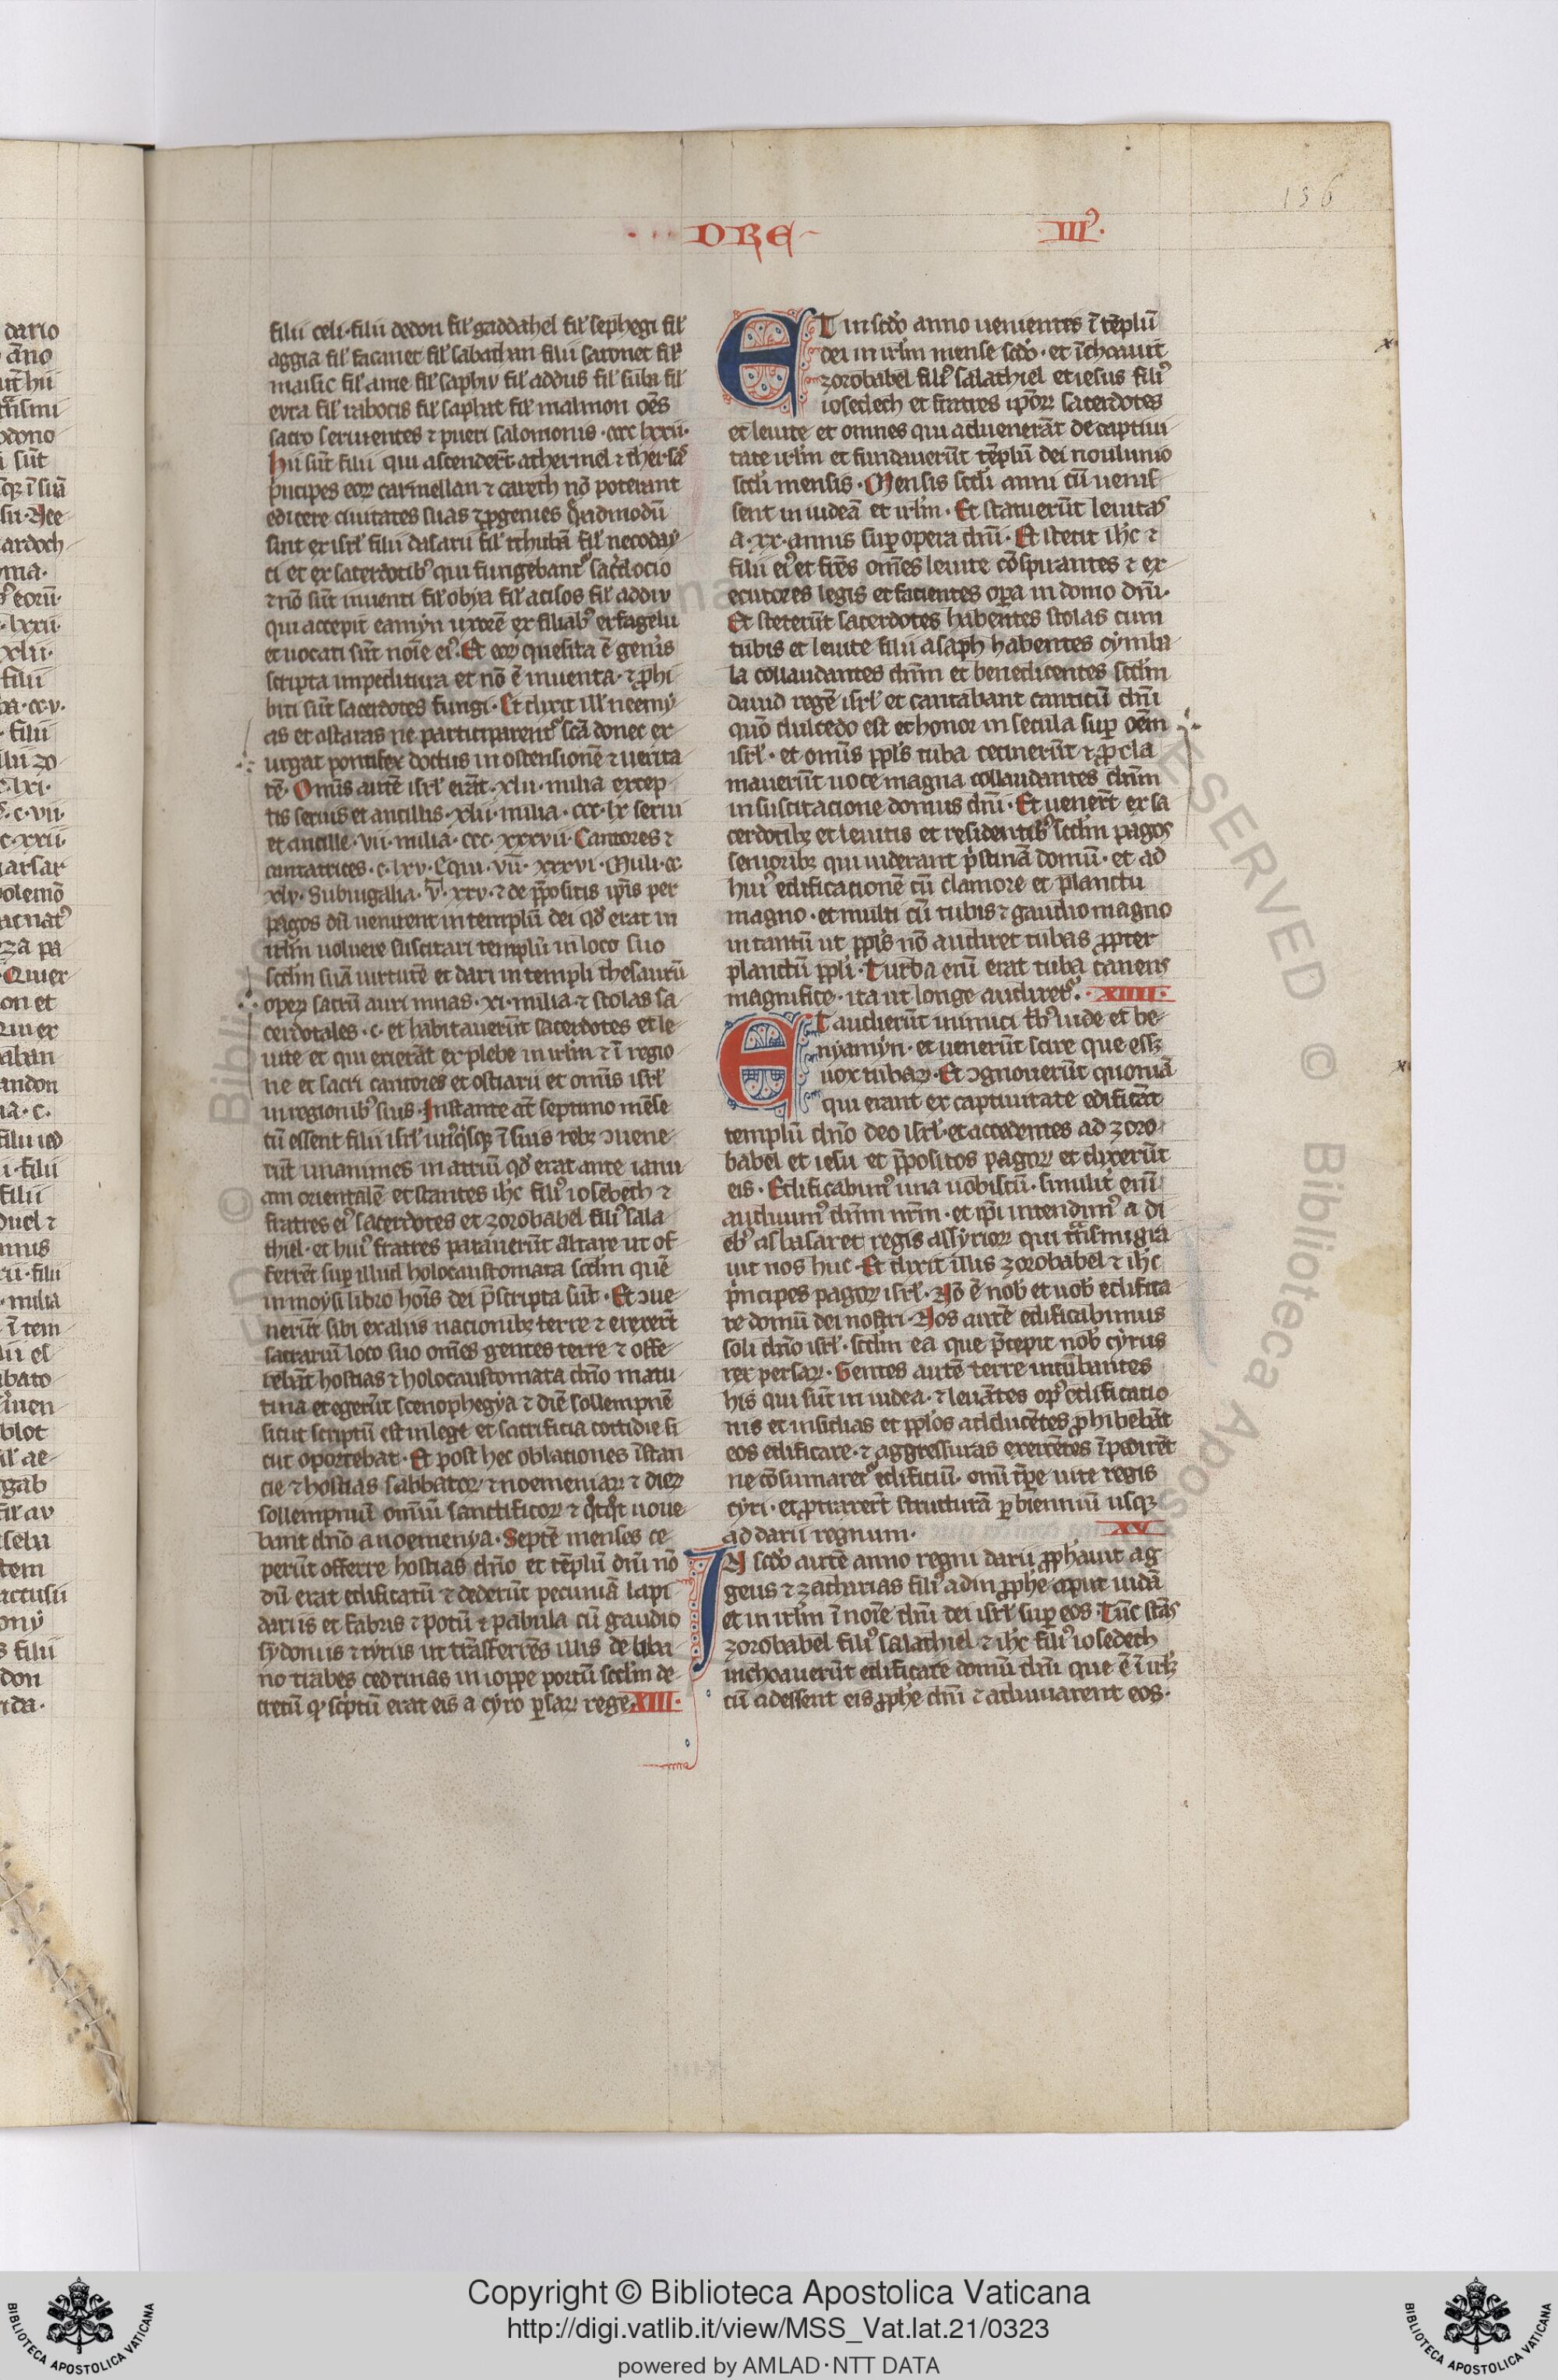 DRE III
136
filii celi · filii dedon fil' gaddahel fil' sephegi fil'
aggia fil' facanet fil' sabathan filii saronet fil'
maisic fil' ame fil' saphiv fil' addus fil' suba fil'
eura fil' rabotis fil' saphat fil' malmon oēs
sacro seruientes ⁊ pueri salomonis · ccc lxxii ·
Hii sūt filii qui ascenderēt athermel ⁊ thersa
pͥncipes eoꝝ carmellan ⁊ careth nō poterant
edicere ciuitates suas ⁊ ꝓgenies
sint ex isrl' filii dalarii fil' fil' necoday
ti et ex sacerdotibꝰ qui fungebantᷣ sac̓docio
⁊ nō sūt inuenti fil' obya fil' acisos fil' addiv
qui accepit eamyn uxorē ex filiabꝰ et fagelu
et uocati sūt noīe eiꝰ · Et eoꝝ quesita ē
scripta impeditura et nō ē inuenta · ⁊ ꝓhi
biti sūt sacerdotes fungi · Et dixit ill' neemy
as et astaras ne participarentᷣ sc̄a donec ex
urgat pontifex doctus in ostensionē ⁊ uerita
tē · Omīs autē isrl' erāt · xlii · milia excep
tis seruis et ancillis · xlii · milia · ccc · lx serui
et ancille · vii · milia · ccc · xxxvii · Cantores ⁊
cantatrices · c · lxv · Equi · vii · xxxvi · Muli · cc
xlv · Subiugalia · v · xxv · ⁊ de p̄positis ip̄is per
pagos dū uenirent in templū dei qd' erat in
irl'm uoluere suscitari templū in loco suo
scd'm suā uirtutē et dari in templi thesaurū
operꝝ sacrū auri mnas · xi · milia · ⁊ stolas sa
cerdotales · c · et habitauerūt sacerdotes et le
uite et qui exierāt ex plebe in irl'm ⁊ ī regio
ne et sacri cantores et ostiarii et omīs isrl'
in regionibꝰ suis · Instante āt septimo mēse
cū essent filii isrl' unꝰqͥsqꝫ ī suis rebꝫ ꝯuene
rūt unanimes in atriū qd' erat ante ianu
am orientalē et stantes ih'c filiꝰ iosebech ⁊
fratres eiꝰ sacerdotes et zorobabel filiꝰ sala
thiel · et huiꝰ fratres parauerūt altare ut of
ferrēt suꝑ illud holocaustomata scd'm quē
in moysi libro hoīs dei p̄scripta sūt · Et ꝯue
nerūt sibi ex aliis nacionibꝫ terre ⁊ erexerūt
sacrariū loco suo om̄es gentes terre ⁊ offe
rebāt hostias ⁊ holocaustomata dn̄o matu
tina et egerūt scenophegya ⁊ diē sollempnē
sicut scriptū est in lege et sacrificia cottidie si
cut oportebat · Et post hec oblationes īstan
cie ⁊ hostias sabbatoꝝ ⁊ noemeniaꝝ ⁊ dieꝝ
sollempniū omīū sanctificoꝝ ⁊ qͦtqͦt uoue
bant dn̄o a noemenya · Septē menses ce
perūt offerre hostias dn̄o et tēplū dn̄i nō
dū erat edificatū ⁊ dederūt pecuniā lapi
dariis et fabris ⁊ potū ⁊ pabula cū gaudio
sydoniis ⁊ tyriis ut trāsferrēt illis de liba
no trabes cedrinas in ioppe portū scd'm de
cretū qͩ sc̓ptū erat eis a cyro ꝑsaꝝ rege · XIII ·
ET in scd'o anno uenientes ī tēplū
dei in irl'm mense scd'o · et īchoauit
zorobabel filiꝰ salathiel et iesus filiꝰ
iosedech et fratres ip̄oꝝ sacerdotes
et leuite et omnes qui aduenerāt de captiui
tate irl'm et fundauerūt tēplū dei nouilunio
scd'i mensis · Mensis scd'i anni cū uenis
sent in iudeā et irl'm · Et statuerūt leuitas
a · xx · annis suꝑ opera dn̄i · Et stetit ih'c ⁊
filii eiꝰ et fr̄es om̄es leuite cōspirantes ⁊ ex
ecutores legis et facientes oꝑa in domo dn̄i ·
Et steterūt sacerdotes habentes stolas cum
tubis et leuite filii asaph habentes cymba
la collaudantes dn̄m et benedicentes scd'm
dauid regē isrl' et cantabant canticū dn̄i
quō dulcedo est et honor in secula suꝑ oēm
isrl' · et omīs ppl's tuba cecinerūt ⁊ ꝓcla
mauerūt uoce magna collaudantes dn̄m
in suscitacione domus dn̄i · Et uenerūt ex sa
cerdotibꝫ et leuitis et residentibꝰ scd'm pagos
senioribꝫ qui uiderant pͥstinā domū · et ad
huiꝰ edificationē cū clamore et planctu
magno · et multi cū tubis ⁊ gaudio magno
in tantū ut ppl's nō audiret tubas ꝓpter
planctū ppl'i · Turba enī erat tuba canens
magnifice · ita ut longe audiretᷣ · XIIII ·
ET audierūt inimici t'bꝰ iude et be
nyamyn · et uenerūt scire que essꝫ
uox tubaꝝ · Et ꝯgnouerūt quoniā
qui erant ex captiuitate edificāt
templū dn̄o deo isrl' · et accedentes ad zoro
babel et iesū et p̄positos pagoꝝ et dixerūt
eis · Edificabimꝰ una uobiscū · similit̓ enī
audiuimꝰ dn̄m nr̄m · et ip̄i intendimꝰ a di
ebꝰ asbasaret regis assyrioꝝ qui trāsmigra
uit nos huc · Et dixit illis zorobabel ⁊ ih'c
pͥncipes pagoꝝ isrl' · Nō ē nob' et uob' edifica
re domū dei nostri · Nos autē edificabimus
soli dn̄o isrl' · scd'm ea que p̄cepit nob' cyrus
rex persaꝝ · Gentes autē terre incūbantes
his qui sūt in iudea · ⁊ leuātes opꝰ edificatio
nis et insidias et ppl'os adducētes ꝓhibebāt
eos edificare · ⁊ aggressuras exercētes īpedirēt
ne cōsumaretᷣ edificiū · omī tꝑe uite regis
cyri · et ꝓtraxerūt structurā ꝑ bienniū usqꝫ
ad darii regnum · XV
IN scd'o autē anno regni darii ꝓph'auit ag
geus ⁊ zacharias filiꝰ adin ꝓph'e apud iudā
et in irl'm ī noīe dn̄i dei isrl' suꝑ eos · Tūc stās
zorobabel filiꝰ salathiel ⁊ ih'c filiꝰ iosedech
inchoauerūt edificare domū dn̄i que ē ī irl'm
cū adessent eis ꝓph'e dn̄i ⁊ adiuuarent eos ·
Copyright © Biblioteca Apostolica Vaticana
http://digi.vatlib.it/view/MSS_Vat.lat.21/0323
powered by AMLAD · NTT DATA
BIBLIOTECA APOSTOLICA VATICANA
BIBLIOTECA APOSTOLICA VATICANA